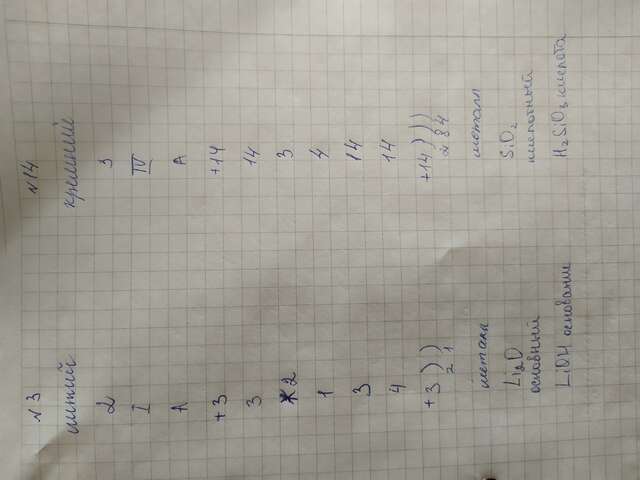 N 3
литий
2
I
A
+3
3
2
1
3
4
+3 ) )
2 1
металл
Li2O
основный
LiOH основание
N 14
кремний
3
IV
A
+14
14
3
4
14
14
+14 ) ) )
2 8 4
металл
SiO2
кислотный
H2SiO3 кислота